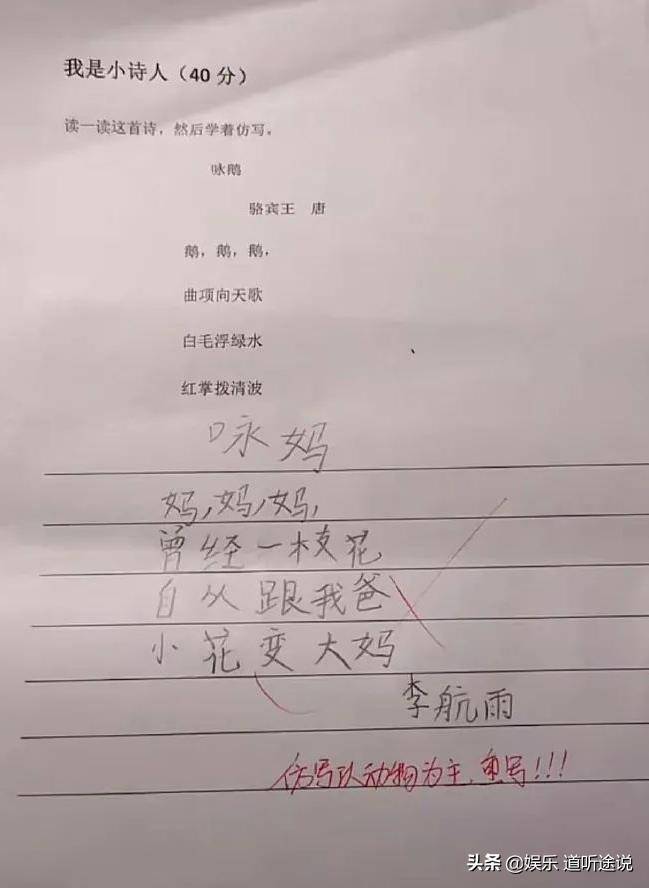 我是小诗人（40 分）
读一读这首诗，然后学着仿写。
咏鹅
骆宾王　唐
鹅，鹅，鹅，
曲项向天歌
白毛浮绿水
红掌拨清波
咏妈
妈,妈,妈,
曾经一枝花
自从跟我爸
小花变大妈
李航雨
仿写以动物为主，重写!!!
头条 @娱乐 道听途说